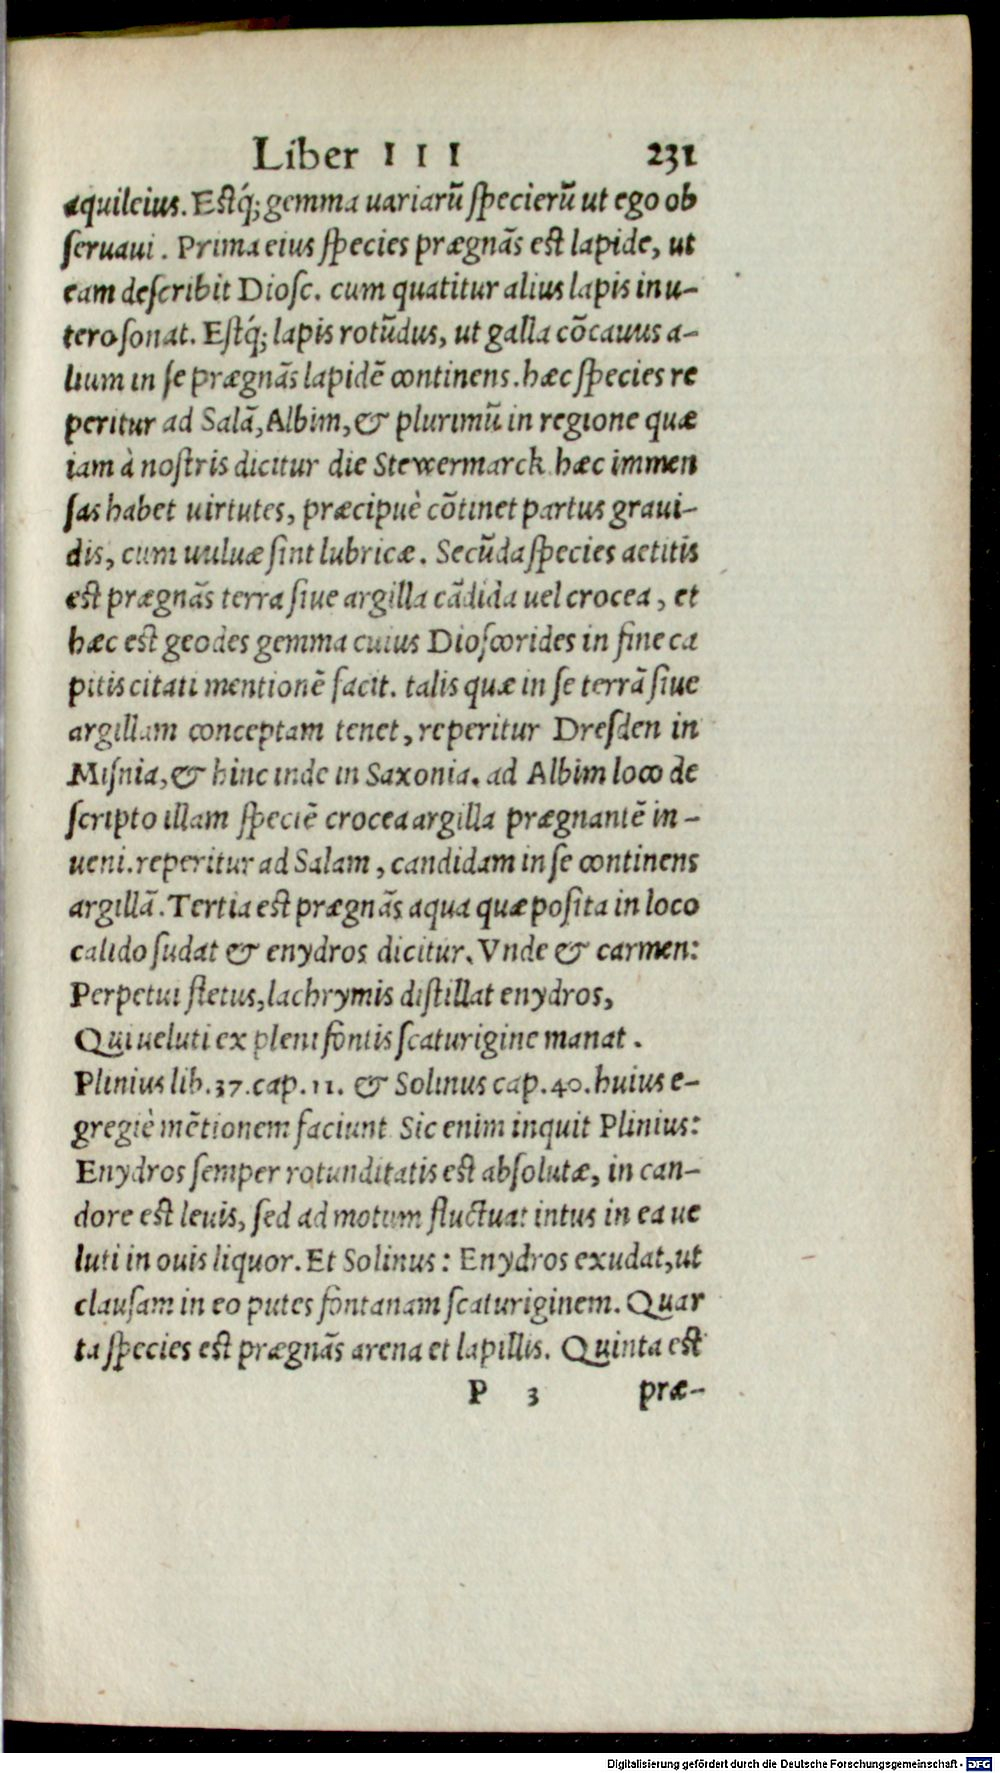 Liber III 231
aquileius. Estq́; gemma uariarũ specierũ ut ego ob
seruaui. Prima eius species prægnãs est lapide, ut
eam describit Diosc. cum quatitur alius lapis in u-
tero sonat. Estq́; lapis rotũdus, ut galla cõcauus a-
lium in se prægnãs lapidẽ continens. hæc species re
peritur ad Salã, Albim, & plurimũ in regione quæ
iam à nostris dicitur die Stewermarck hæc immen
sas habet uirtutes, præcipuè cõtinet partus graui-
dis, cum uuluæ sint lubricæ. Secũda species aetitis
est prægnãs terra siue argilla cãdida uel crocea, et
hæc est geodes gemma cuius Dioscorides in fine ca
pitis citati mentionẽ facit. talis quæ in se terrã siue
argillam conceptam tenet, reperitur Dresden in
Misnia, & hinc inde in Saxonia. ad Albim loco de
scripto illam speciẽ crocea argilla prægnantẽ in-
ueni. reperitur ad Salam, candidam in se continens
argillã. Tertia est prægnãs aqua quæ posita in loco
calido sudat & enydros dicitur. Vnde & carmen:
Perpetui fletus, lachrymis distillat enydros,
Qui ueluti ex pleni fontis scaturigine manat.
Plinius lib. 37. cap. 11. & Solinus cap. 40. huius e-
gregiè mẽtionem faciunt Sic enim inquit Plinius:
Enydros semper rotunditatis est absolutæ, in can-
dore est leuis, sed ad motum fluctuat intus in ea ue
luti in ouis liquor. Et Solinus: Enydros exudat, ut
clausam in eo putes fontanam scaturiginem. Quar
ta species est prægnãs arena et lapillis. Quinta est
P 3 præ-
Digitalisierung gefördert durch die Deutsche Forschungsgemeinschaft - DFG